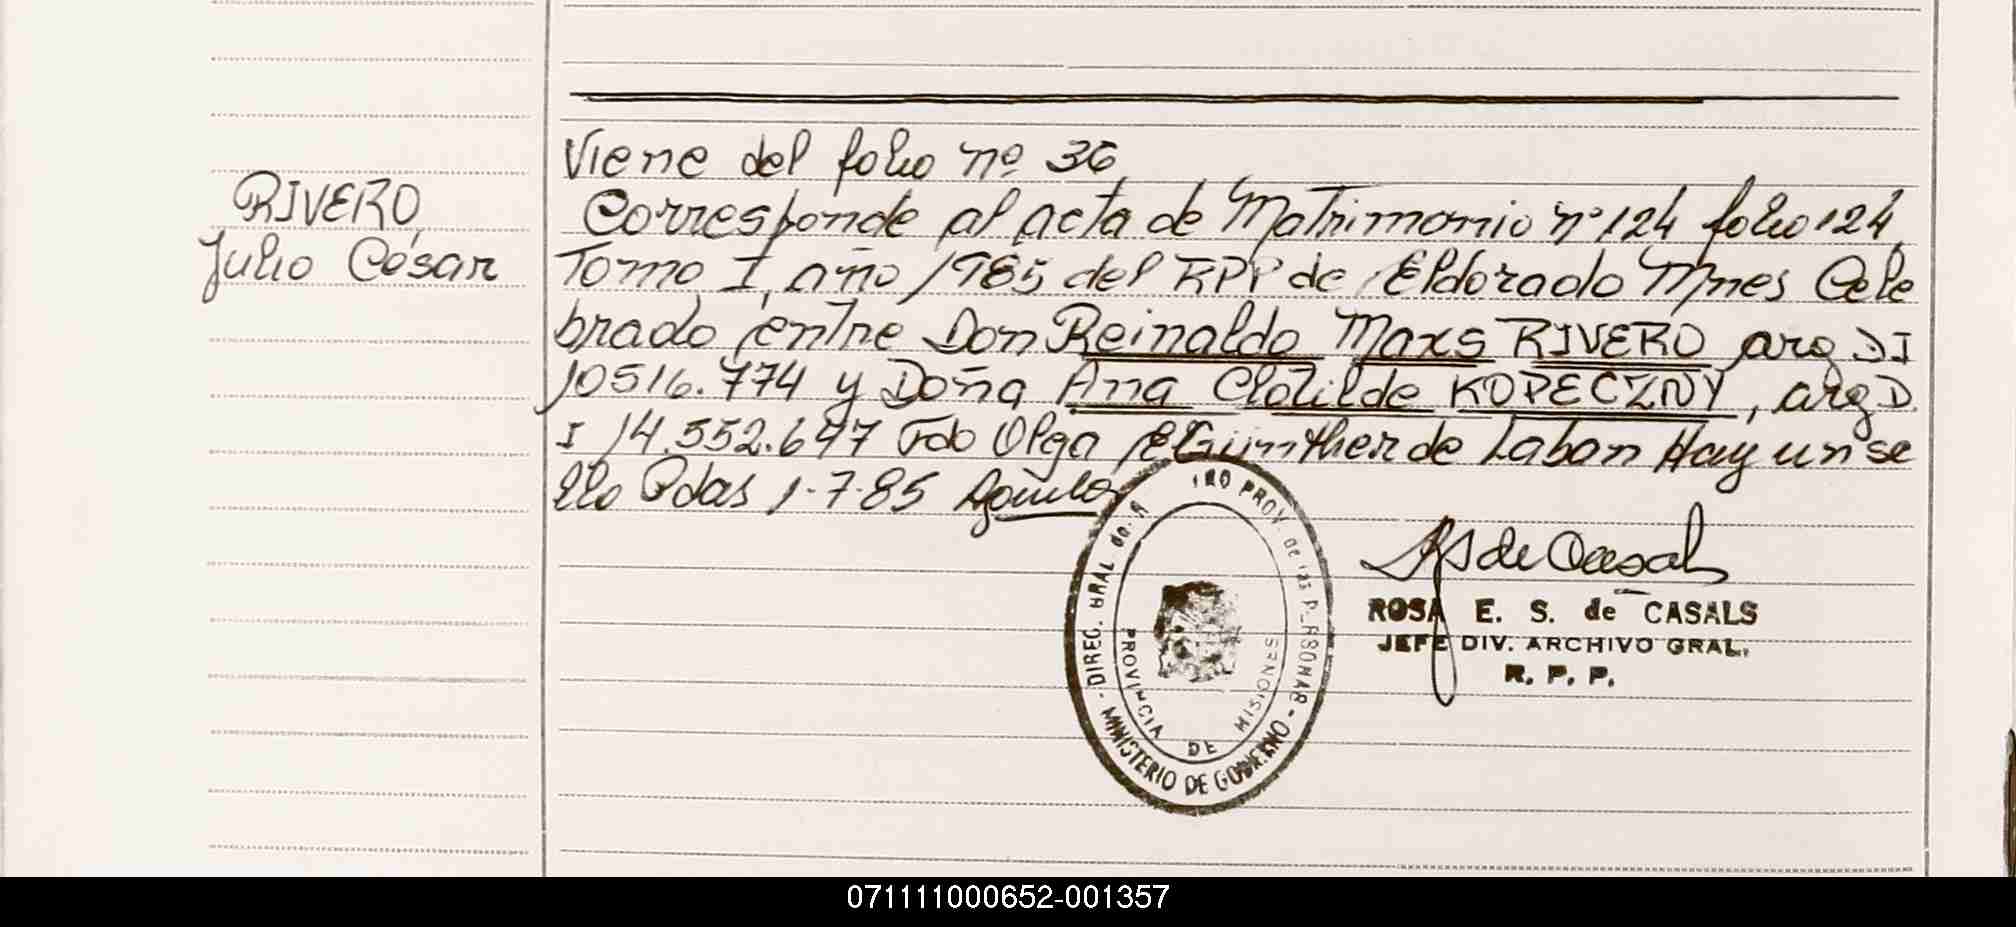 Viene del folio nº 36
RIVERO,
Julio César
Corresponde al acta de Matrimonio nº 124 folio 124,
Tomo I, año 1985 del RPP de Eldorado Mnes Cele
brado entre Don Reinaldo Maxs RIVERO arg DI
10516.774 y Doña Ana Clotilde KOPECZNY, arg D.
I 14.552.647 Fdo Olga E Günther de Labon Hay un se
llo Pdas 1-7-85
DIREC. GRAL
PROV. de las
MINISTERIO DE GOBIERNO
PROVINCIA DE MISIONES
ROSA E. S. de CASALS
JEFE DIV. ARCHIVO GRAL.
R. P. P.
071111000652-001357